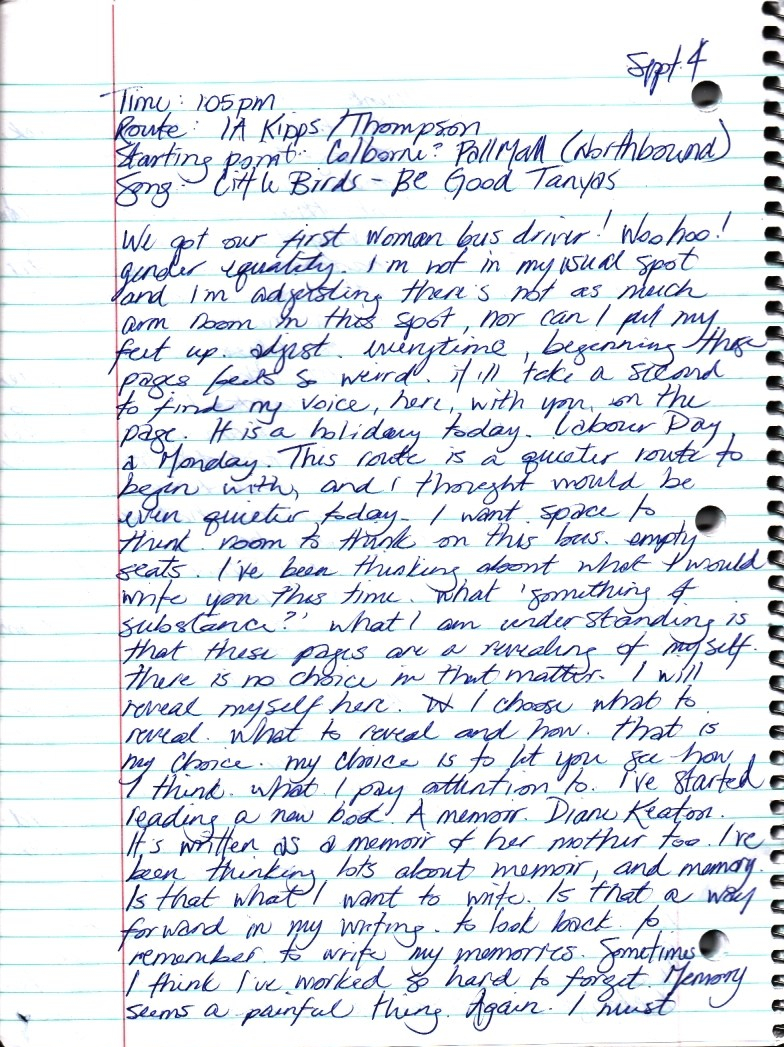 Sept. 4
Time: 105pm
Route: 1A Kipps/Thompson
Starting point: Colborne & Pall Mall (Northbound)
Song: Little Birds - Be Good Tanyas
We got our first woman bus driver! Woohoo!
gender equality. I'm not in my usual spot
and i'm adjusting there's not as much
arm room in this spot, nor can I put my
feet up. adjust. everytime, beginning these
pages feels so weird. it'll take a second
to find my voice, here, with you, on the
page. It is a holiday today. Labour Day,
a Monday. This route is a quieter route to
begin with, and i thought would be
even quieter today. I want space to
think. room to think on this bus. empty
seats. I've been thinking about what I would
write you this time. What 'something of
substance?' what I am understanding is
that these pages are a revealing of myself.
there is no choice in that matter. I will
reveal myself here. I choose what to
reveal. What to reveal and how. that is
my choice. my choice is to let you see how
I think. what I pay attention to. I've started
reading a new book. A memoir. Diane Keaton.
It's written as a memoir of her mother too. I've
been thinking lots about memoir, and memory.
Is that what I want to write. Is that a way
forward in my writing. to look back. to
remember. to write my memories. Sometimes
I think I've worked so hard to forget. Memory
seems a painful thing. Again. I must